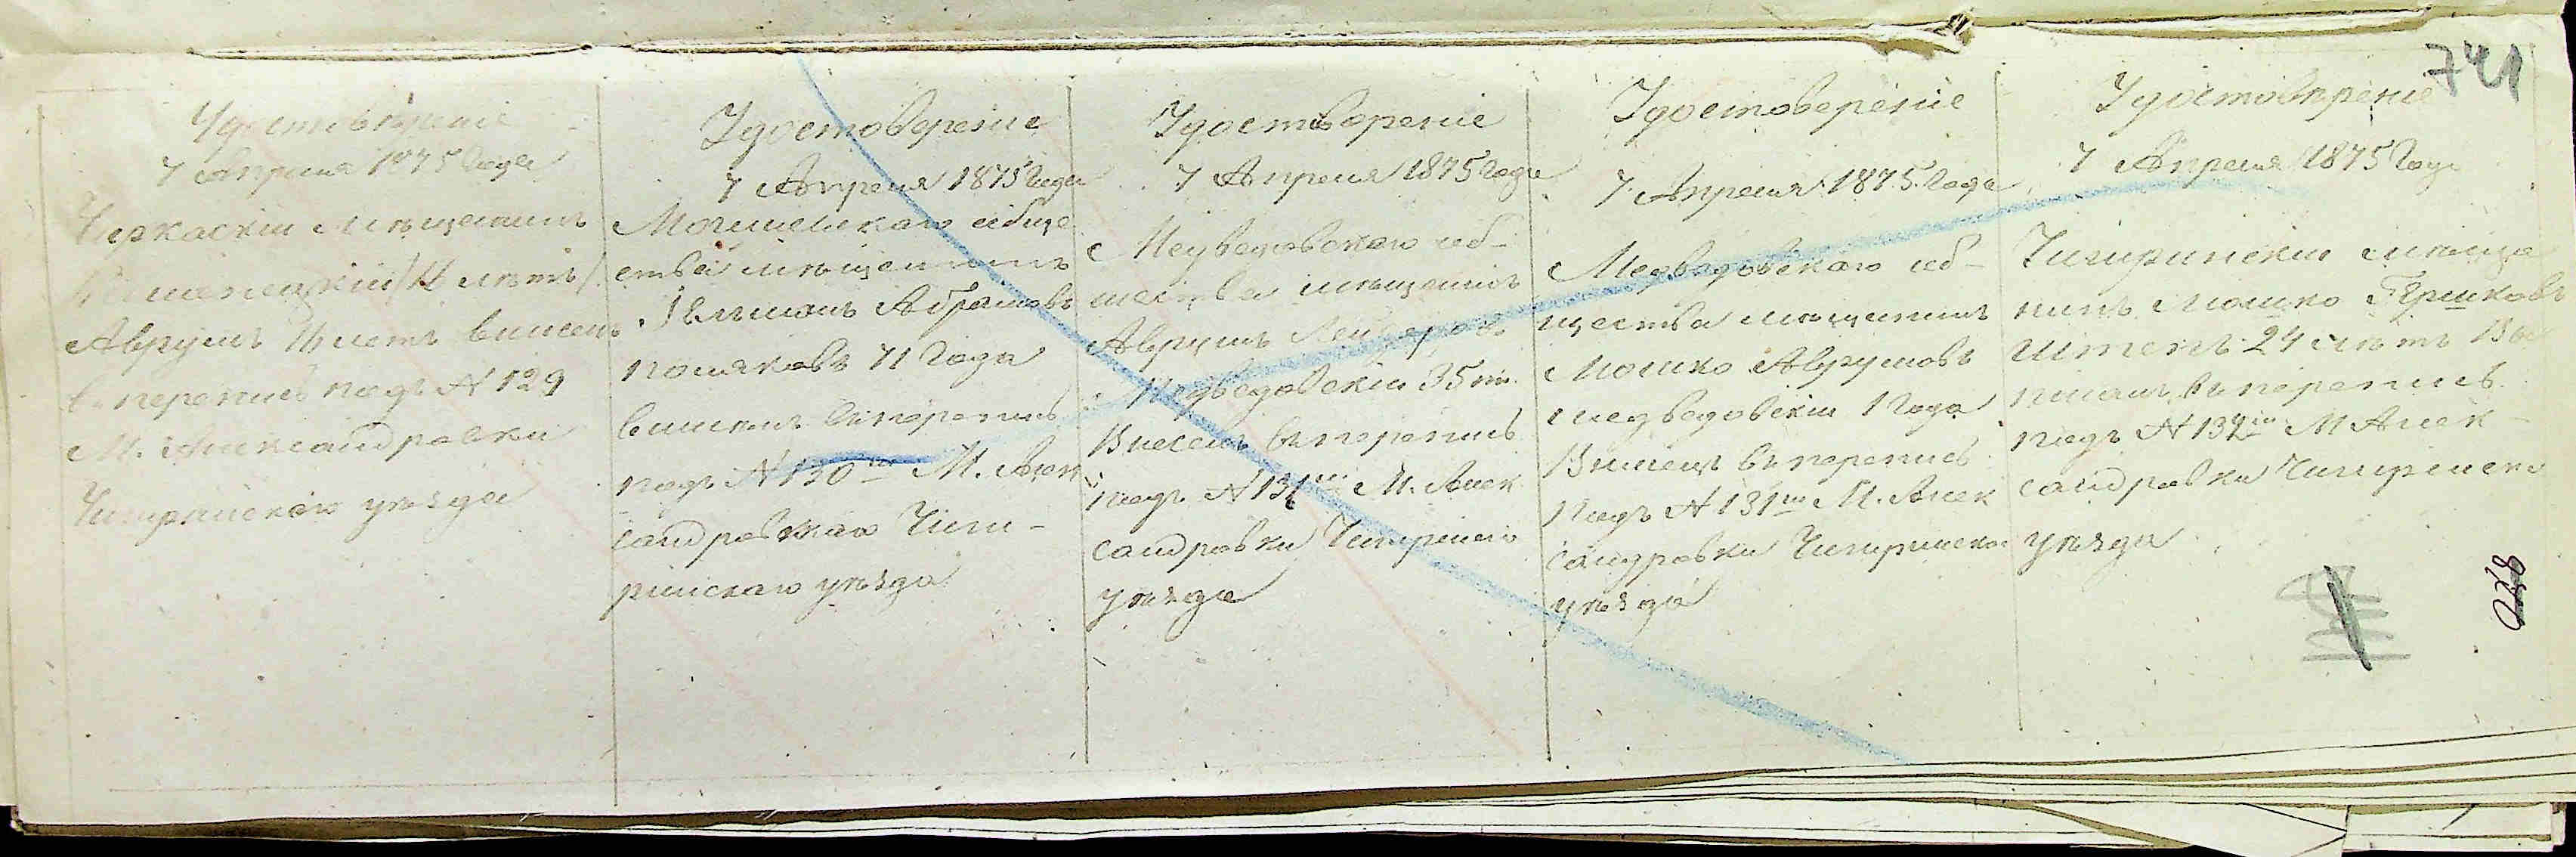 741
Удостовѣреніе
7 Апреля 1875 Года
Черкаскій мѣщанинъ
Аврумъ летъ внесенъ
в перепись подъ N 129
М. Александровки
Чигиринскаго уѣзда
Удостоверение
7 Апреля 1875 Года
обще
ства мѣщанинъ
Абрамовъ
Поляковъ 71 Года
внесенъ въ перепись
подъ N 130 М. Алек
сандровкаго Чиги-
ринскаго уѣзда
Удостоверение
7 Апреля 1875 Года
Медведовскаго об-
шества мѣщанинъ
Аврумъ Лейзеровъ
Медведовскій 35 лѣ.
Внесенъ въ перепись
подъ N 131 М. Алек
сандровки Чигиринскаго
уѣзда
Удостоверение
7 Апреля 1875 Года
Медведовскаго об-
щества мѣщанинъ
Мошко Аврумовъ
Медведовскій 1 Года
Внесенъ въ перепись
подъ N 131 М. Алек
сандровки Чигиринскаго
уѣзда
Удостовѣрение
7 Апреля 1875 Года
Чигиринскій мѣща
нинъ Мошко Гершковъ
24 лѣтъ
въ перепись
подъ N 132 М Алек-
сандровки Чигиринскаго
уѣзда